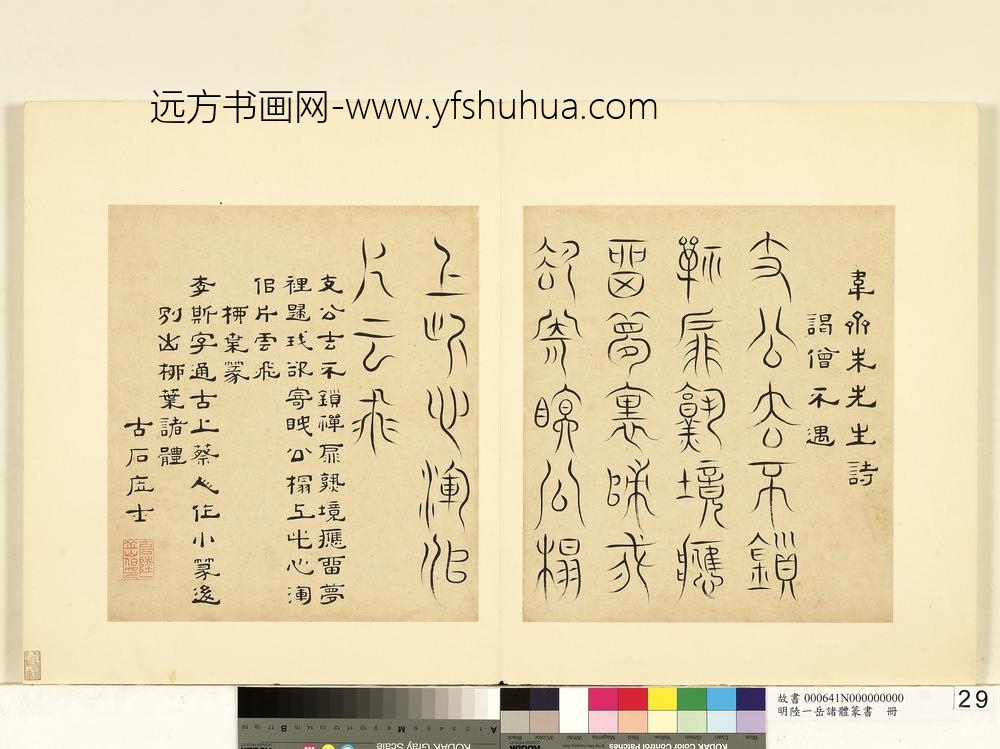 远方书画网-www.yfshuhua.com
韋齋朱先生詩
謁僧不遇
支公去不鎖
禪扉熟境應
留夢裏歸我
欲寄眠公榻
上此心渾似
片云飛
支公去不鎖禪扉熟境應留夢
裡歸我欲寄眠公榻上此心渾
佀片雲飛
柳葉篆
李斯字通古上蔡人作小篆後
別出柳葉諸體
古石居士
故書 000641N000000000
明陸一岳諸體篆書 冊
29
KODAK Gray Scale
KODAK Color Control Patches
Blue
Cyan
Green
Yellow
Red
Magenta
White
3/Color
Black